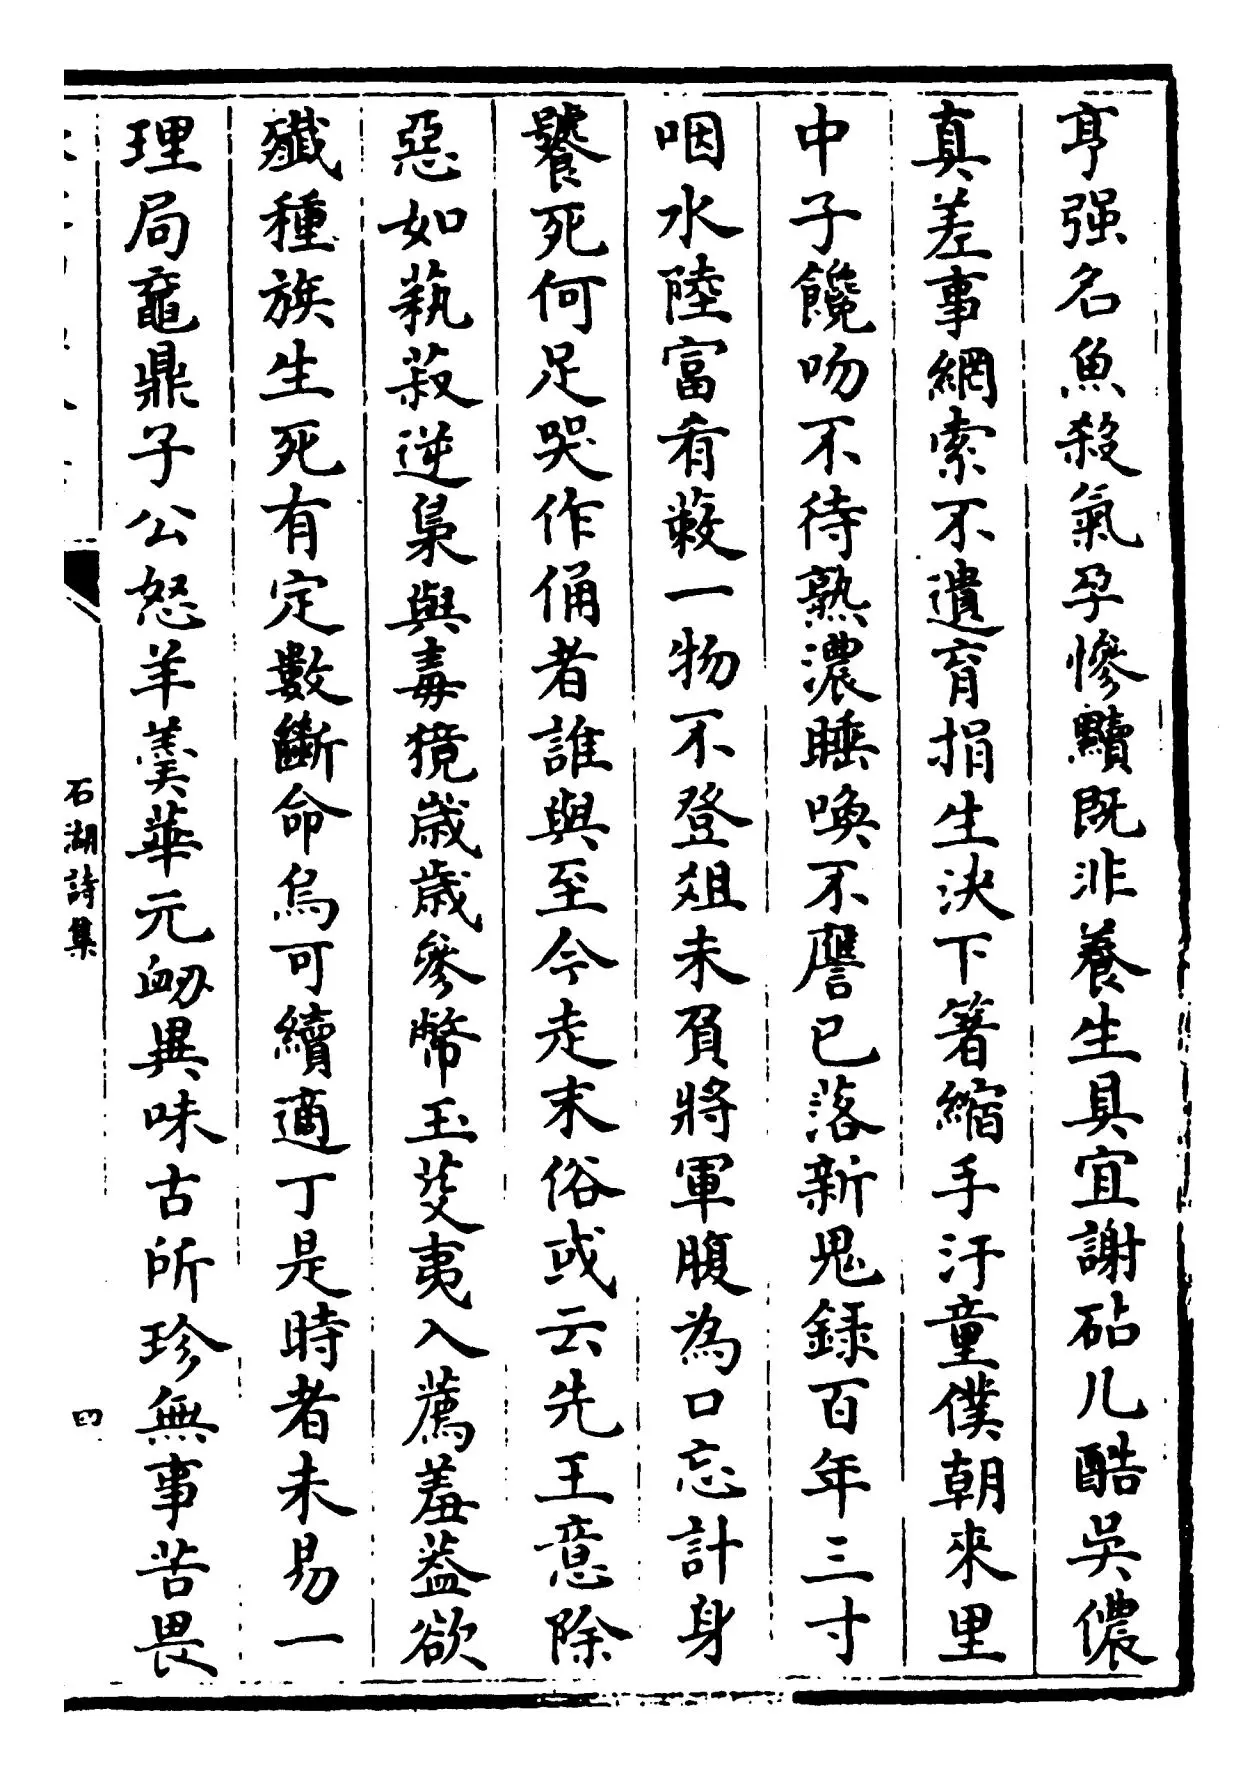 亨强名魚殺氣孕慘黷既非養生具宜謝砧几酷吳儂
真差事網索不遺育捐生決下箸縮手汙童僕朝來里
中子饞吻不待熟濃睡喚不譍已落新鬼録百年三寸
咽水陸富肴蔌一物不登俎未負將軍腹為口忘計身
饕死何足哭作俑者誰與至今走末俗或云先王意除
惡如蓺菽逆梟與毒獍歲歲參幣玉芟夷入薦羞蓋欲
殲種族生死有定數斷命烏可續適丁是時者未易一
理局黿鼎子公怒羊羹華元衂異味古所珍無事苦畏
石湖詩集
四